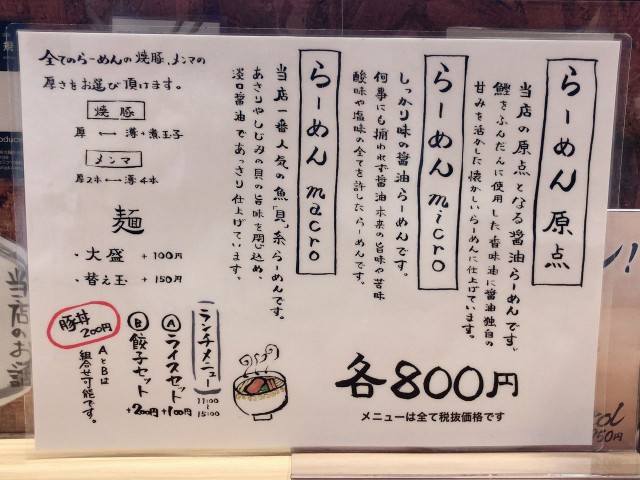 らーめん 原点
当店の原点となる醤油らーめんです。
鰹をふんだんに使用した香味油に醤油独自の
甘みを活かした懐かしいらーめんに仕上げています。
らーめん micro
しっかり味の醤油らーめんです。
何事にも捕われず醤油本来の旨味や苦味
酸味や塩味の全てを許したらーめんです。
らーめん macro
当店一番人気の魚「貝」系らーめんです。
あさりやしじみの貝の旨味を閉じ込め、
淡口醤油であっさり仕上げています。
各800円
メニューは全て税抜価格です
全てのらーめんの焼豚、メンマの
厚さをお選び頂けます。
焼豚
厚 ←→ 薄+煮玉子
メンマ
厚2本 ←→ 薄4本
麺
・大盛 +100円
・替え玉 +150円
ランチメニュー
11:00
~
15:00
Ⓐライスセット
+100円
Ⓑ餃子セット
+200円
AとBは
組合せ可能です。
豚丼
200円
当店のお